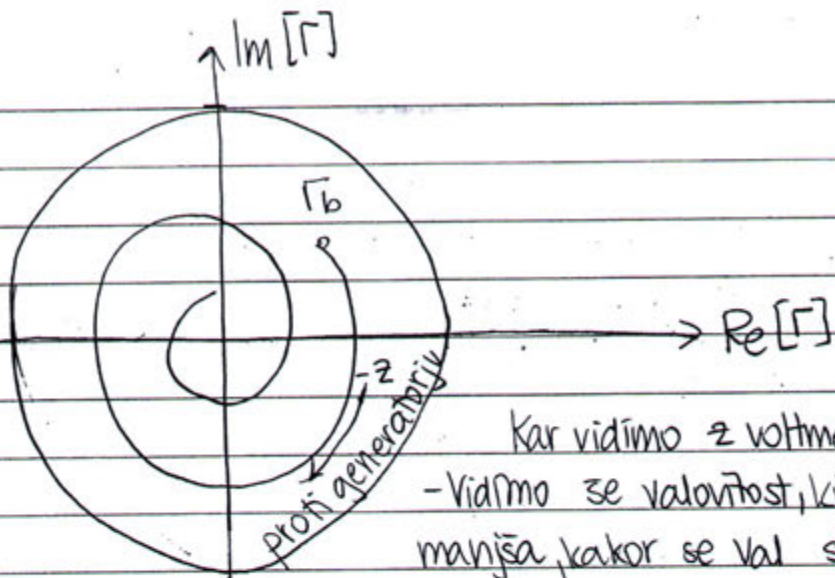 Im [Γ]
Γb
Re [Γ]
-z
proti generatorju
Kar vidimo z voltm
- Vidimo še valovitost, k
manjša, kakor se val s